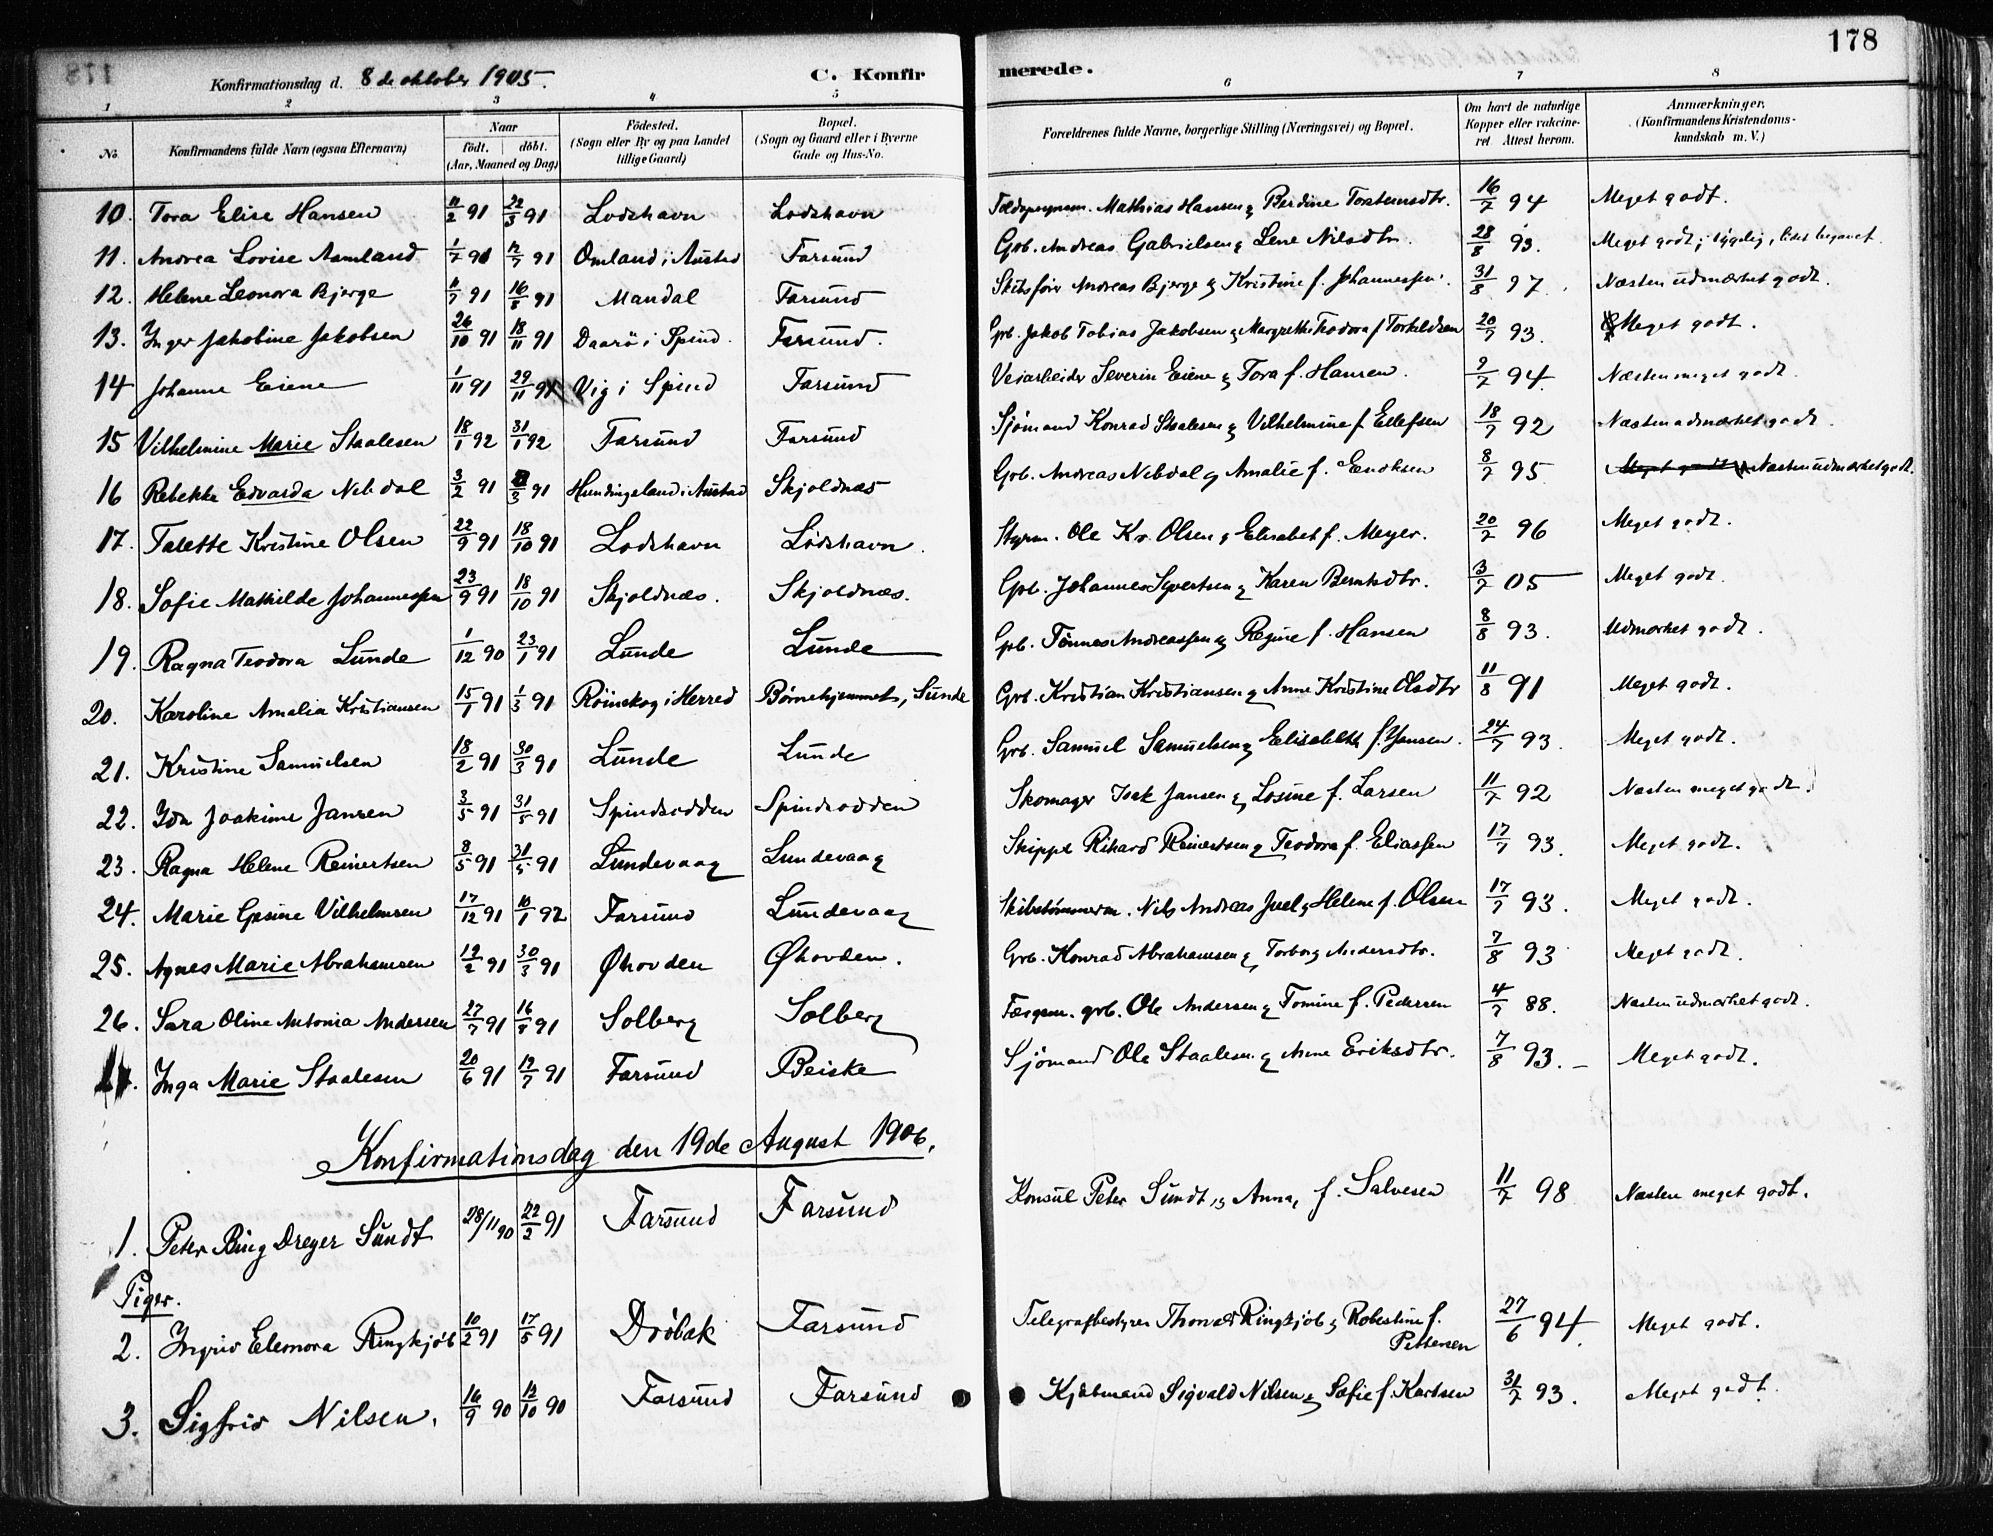 178
Konfirmationsdag d. 8de oktober 1905. C. Konfirmerede.
1 2 3 4 5 6 7 8
No. Konfirmandens fulde Navn (ogsaa Efternavn) Naar födt. döbt. (Aar, Maaned og Dag) Födested. (Sogn eller By og paa Landet tillige Gaard) Bopæl. (Sogn og Gaard eller i Byerne Gade og Hus-No. Forældrenes fulde Navne, borgerlige Stilling (Næringsvei) og Bopæl. Om havt de naturlige Kopper eller vakcineret Attest herom. Anmærkninger. (Konfirmandens Kristendomskundskab m. V.)
10. Tora Elise Hansen 11/2 91 22/3 91 Lodshavn Lodshavn Mathias Hansen & Berdine Torstensdtr. 16/7 94 Meget godt.
11. Andrea Lovise Aamland 1/7 91 12/7 91 Omland i Austad Farsund Grb. Andreas Gabrielsen & Lene Nilsdtr. 28/8 93. Meget godt; sygelig, lidet begavet.
12. Helene Leonora Bjerge 11/7 91 16/8 91 Mandal Farsund Skibsfører Andreas Bjerge & Kristine f. Johannessen. 31/8 97. Næsten udmærket godt.
13. Inger Jakobine Jakobsen 26/10 91 18/11 91 Daarö i Spind. Farsund. Grb. Jakob Tobias Jakobsen & Margrethe Teodora f. Torkildsen 20/7 93. Meget godt.
14 Johanne Eiene 1/11 91 29/11 91 Vig i Spind Farsund Veiarbeider Severin Eiene & Tora f. Hansen. 9/7 94. Næsten meget godt.
15 Vilhelmine Marie Staalesen 18/1 92 31/1 92 Farsund Farsund Sjømand Konrad Staalesen & Vilhelmine f. Ellefsen 18/7 92 Næsten udmærket godt.
16 Rebekke Edvarda Nebdal 3/2 91 /3 91 Hundingsland i Austad Skjoldnæs Grb. Andreas Nebdal & Amalie f. Enoksen 8/7 95. Meget godt Næsten udmærket godt.
17. Talette Kristine Olsen 22/9 91 18/10 91 Lodshavn Lodshavn. Styrm. Ole Kr. Olsen & Elisabet f. Meyer. 20/7 96 Meget godt.
18. Sofie Mathilde Johannessen 23/9 91 18/10 91 Skjoldnæs. Skjoldnæs. Grb. Johannes Syvertsen & Karen Berntsdtr. 3/7 05 Meget godt.
19. Ragna Teodora Lunde 1/12 90 23/1 91 Lunde Lunde Grb. Tønnes Andreassen & Regine f. Hansen 8/8 93. Udmærket godt.
20. Karoline Amalia Kristiansen 15/1 91 1/3 91 Röinskog i Herred Børnehjemmet, Sunde Grb. Kristian Kristiansen & Anne Kristine Olsdtr 11/8 91 Meget godt.
21. Kristine Samuelsen 18/2 91 30/3 91 Lunde Lunde Grb. Samuel Samuelsen & Elisabeth f. Jansen. 24/7 93. Meget godt.
22. Ida Joakime Jansen 3/5 91 31/5 91 Spindsodden Spindsodden Skomager Isak Jansen & Losine f. Larsen 11/7 92 Næsten meget godt.
23. Ragna Helene Reinertsen 8/5 91 31/5 91 Lundevaag Lundevaag Skipper Rikard Reinertsen & Teodora f. Eliassen 17/7 93. Meget godt.
24. Marie Gesine Vilhelmsen 17/12 91 10/1 92 Farsund Lundevaag Skibstømmerm. Nils Andreas Juel & Helene f. Olsen 17/7 93. Meget godt.
25. Agnes Marie Abrahamsen 12/2 91 30/3 91 Øhovden Øhovden. Grb. Konrad Abrahamsen & Torborg Andersdtr. 7/8 93 Meget godt.
26. Sara Oline Antonia Andersen 27/7 91 16/8 91 Solberg Solberg Færgem. grb. Ole Andersen & Tomine f. Pedersen 4/7 88. Næsten udmærket godt.
Inga Marie Staalesen 20/6 91 12/7 91 Farsund Beiske Sjömand Ole Staalesen & Anne Eriksdtr. 7/8 93. Meget godt.
Konfirmationsdag den 19de August 1906.
1. Peter Bing Dreyer Sundt 28/11 90 22/2 91 Farsund Farsund Konsul Peter Sundt & Anna, f. Salvesen 11/7 98 Næsten meget godt.
Piger.
2. Ingrid Eleonora Ringkjøb 10/2 91 17/5 91 Dröbak Farsund Telegrafbestyrer Thomas Ringkjøb & Robertine f. Pettersen 27/6 94. Meget godt.
3. Sigfrid Nilsen. 16/9 90 12/10 90 Farsund Farsund Kjøbmand Sigvald Nilsen & Sofie f. Karlsen 31/7 93. Meget godt.